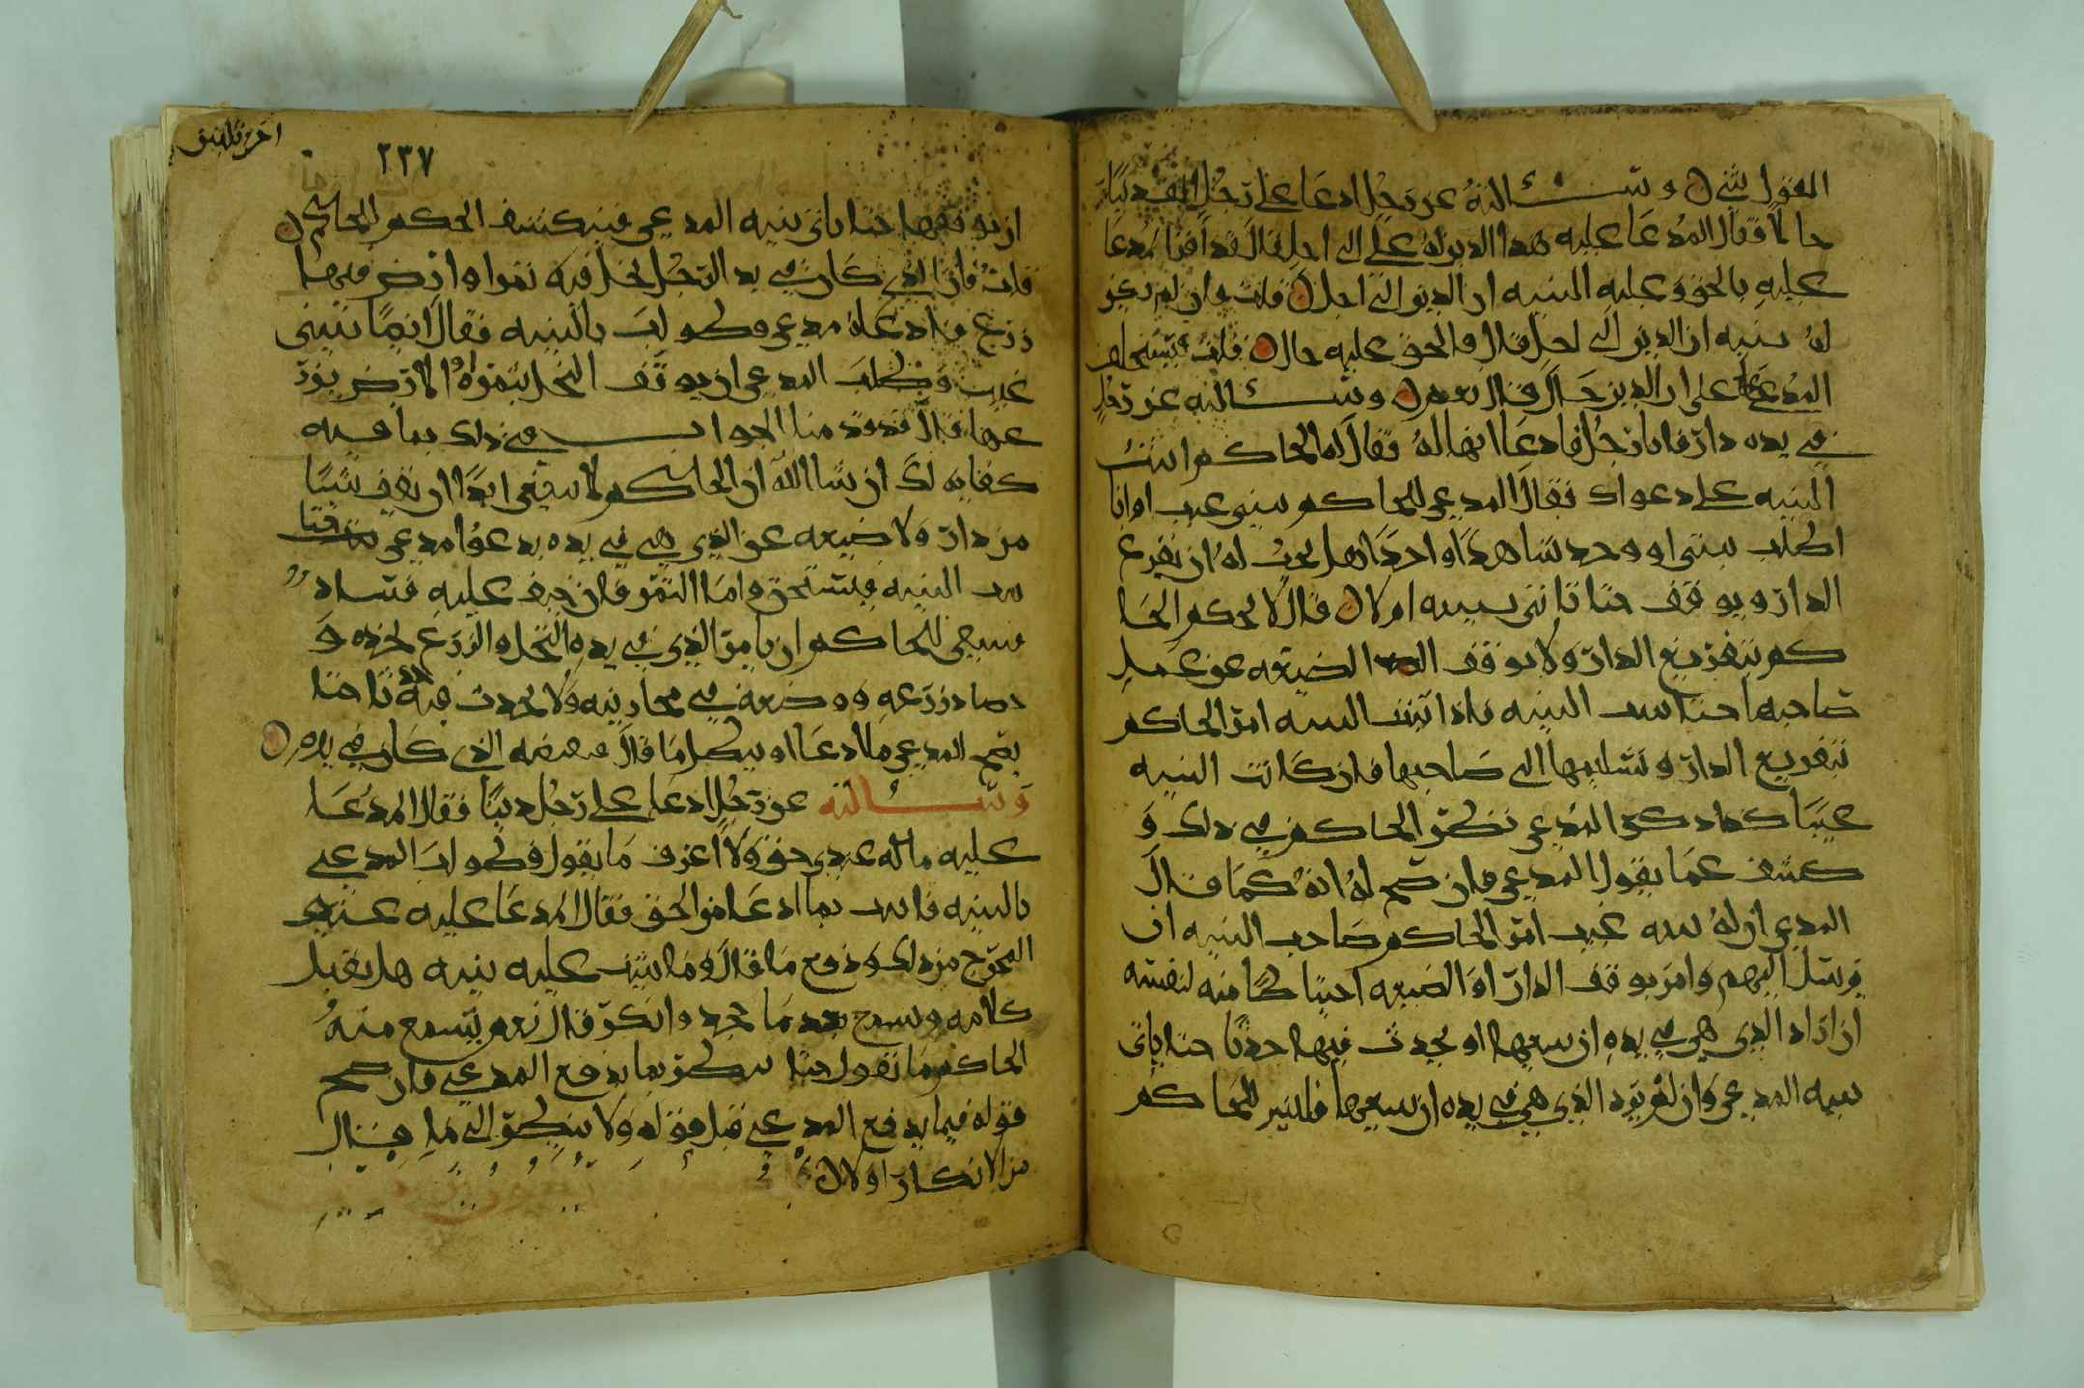 القول شي وسألته عن رجل ادعا على رجل الف دينار
حالا فقال المدعا عليه هذا الدين له علي الى اجل قال قد اقر المدعا
عليه بالحق وعليه البينه ان الدين الى اجل قلت وان لم يكن
له بينه ان الدين الى اجل قال فالحق عليه حال قلت فيستحلف
المدعا على ان الدين حال قال نعم وسألته عن رجل
في يده دار فاتا رجل فادعا انها له فقال له الحاكم اثبت
البينه على دعواك فقال المدعي للحاكم بينتي غيب او انا
اطلب بينتي او وجد شاهدا واحدا هل يجب له ان يفرغ
الدار ويوقف حتا تاتي بينته ام لا قال لا يحكم الحا
كم بتفريغ الدار ولا يوقف الضيعه عن عمل
صاحبها حتا تثبت البينه فاذا ثبتت البينه امر الحاكم
بتفريغ الدار وتسليمها الى صاحبها فان كانت البينه
غيبا كما ذكر المدعي نظر الحاكم في ذلك و
كشف عما يقول المدعي فان صح له انه كما قال
المدعي ان له بينه غيب امر الحاكم صاحب البينه ان
يرسل اليهم وامر بوقف الدار او الضيعه احتياطا منه لنفسه
ان اراد الذي هي في يده ان يبيعها او يحدث فيها حدثا حتا ياتي
بينه المدعي وان لم يرد الذي هي في يده ان يبيعها فليس للحاكم
اخر تلتين
٢٣٧
ان يوقفها حتا ياتي بينه المدعي فينكشف الحكم للحاكم
قلت فان الذي كان في يد الرجل نخل فيه ثمر او ارض فيها
زرع فادعاه مدعي وطولب بالبينه فقال انما بينتي
غيب وطلب المدعي ان يوقف النخل بثمره او الارض بزر
عها قال قد رد منا الجواب في ذلك بما فيه
كفايه لك ان شا الله ان الحاكم لا ينبغي ابدا ان يقف شيئا
من دار ولا ضيعه عن الذي هي في يده بدعوا مدعي حتا
تثبت البينه فيستحق واما الثمر فان خيف عليه فساد
فينبغي للحاكم ان يامر الذي في يده النخل والزرع بجذه و
حصاد زرعه ووضعه في مخازينه ولا يحدث فيه حدثا حتا
يصح للمدعي ما ادعا او يبطل ما قال فيقبضه الذي كان في يده
وسألته عن رجل ادعا على رجل دينا فقال المدعا
عليه ما له عندي حق ولا اعرف ما يقول فطولب المدعي
بالبينه فاثبت بما ادعا من الحق فقال المدعا عليه عندي
المخرج من ذلك ودفع ما قال وما ثبت عليه بينه هل يقبل
كلامه ويسمع بعد ما جحد وانكر قال نعم يسمع منه
الحاكم ما يقول حتا ينظر بما يدفع المدعي فان صح
قوله فيما يدفع المدعي قبل قوله ولا ينظر الى ما قال
من الانكار اولا